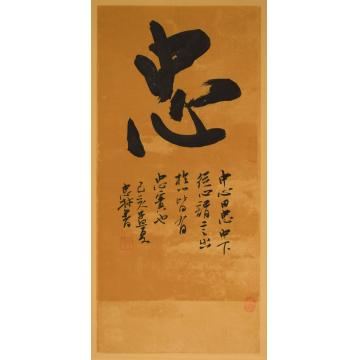 忠
中心曰忠中下
從心謂言出
於心皆有
忠實也
己亥孟夏
忠林書